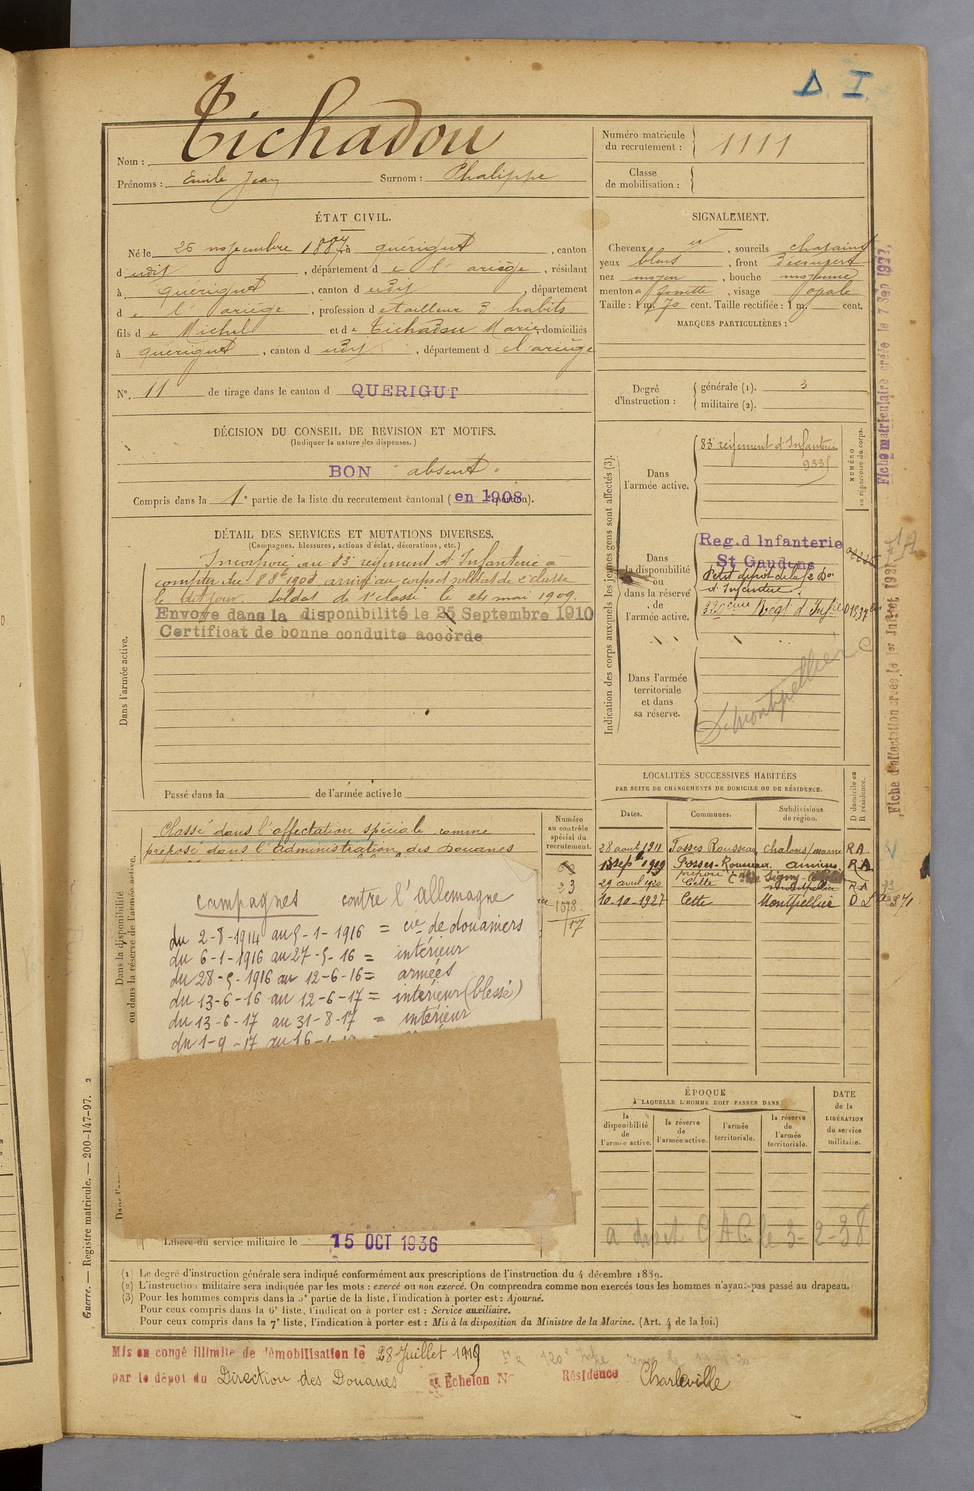 D. I.
Nom : Tichadou
Prénoms : Emile Jean Surnom : Phalippe
Numéro matricule du recrutement : 1111
Classe de mobilisation :
ÉTAT CIVIL.
Né le 25 novembre 1887 à quérigut, canton
d udit, département d e l'ariège, résidant
à Querigut, canton d udit, département
d e l'ariège, profession d e tailleur d habits
fils d e Michel et d e Tichadou Marie domiciliés
à querigut, canton d udit, département d e l'ariège
N°. 11 de tirage dans le canton d QUERIGUT
SIGNALEMENT.
Cheveux et, sourcils chatains
yeux bleus, front découvert
nez moyen, bouche moyenne
menton à fossette, visage ovale
Taille : 1 m. 70 cent. Taille rectifiée : 1 m. cent.
MARQUES PARTICULIÈRES :
Degré d'instruction :
générale (1). 3
militaire (2).
DÉCISION DU CONSEIL DE REVISION ET MOTIFS.
(Indiquer la nature des dispenses.)
BON absent
Compris dans la 1e partie de la liste du recrutement cantonal (en 1908).
DÉTAIL DES SERVICES ET MUTATIONS DIVERSES.
(Campagnes, blessures, actions d'éclat, décorations, etc.)
Dans l'armée active.
Incorporé au 83e régiment d'Infanterie à
compter du 8 8bre 1908 arrivé au corps et soldat de 2e classe
le dit jour. Soldat de 1e classe le 24 mai 1909.
Envoyé dans la disponibilité le 25 Septembre 1910
Certificat de bonne conduite accordé
Passé dans la de l'armée active le
Indication des corps auxquels les jeunes gens sont affectés (3).
Dans l'armée active.
83e régiment d'Infanterie
9335
NUMÉRO au répertoire du corps.
Dans la disponibilité ou dans la réserve de l'armée active.
Reg. d Infanterie
St Gaudens
Petit dépôt de la 12 Don
d'Infanterie.
320ème Regt d'Infie
Dans l'armée territoriale et dans sa réserve.
Montpellier
Fiche matriculaire créée le 7 Sep 1927,
Fiche d'affectation créée le 1er Juillet 1921
Dans la disponibilité ou dans la réserve de l'armée active.
Classé dans l'affectation spéciale comme
préposé dans l'Administration des Douanes
Numéro au contrôle spécial du recrutement.
23
1578
17
campagnes contre l'allemagne
du 2-8-1914 au 5-1-1916 = cie de douaniers
du 6-1-1916 au 27-5-16 = intérieur
du 28-5-1916 au 12-6-16 = armées
du 13-6-16 au 12-6-17 = intérieur (blessé)
du 13-6-17 au 31-8-17 = intérieur
du 1-9-17 au 16-
LOCALITÉS SUCCESSIVES HABITÉES
PAR SUITE DE CHANGEMENTS DE DOMICILE OU DE RÉSIDENCE.
Dates. Communes. Subdivisions de région. D domicile ou R résidence.
28 aout 1911 Fosses Rousseau chalons/marne R A
15 sepbre 1919 Fosses-Rousseau amiens R A
29 avril 1920 Cette Montpellier R A
10-10-1927 Cette Montpellier D
ÉPOQUE
À LAQUELLE L'HOMME DOIT PASSER DANS
la disponibilité de l'armée active.
la réserve de l'armée active.
l'armée territoriale.
la réserve de l'armée territoriale.
DATE de la LIBÉRATION du service militaire.
a droit C A C le 3-2-38
Libéré du service militaire le 15 OCT 1936
(1) Le degré d'instruction générale sera indiqué conformément aux prescriptions de l'instruction du 4 décembre 1889.
(2) L'instruction militaire sera indiquée par les mots : exercé ou non exercé. On comprendra comme non exercés tous les hommes n'ayant pas passé au drapeau.
(3) Pour les hommes compris dans la 5e partie de la liste, l'indication à porter est : Ajourné.
Pour ceux compris dans la 6e liste, l'indication à porter est : Service auxiliaire.
Pour ceux compris dans la 7e liste, l'indication à porter est : Mis à la disposition du Ministre de la Marine. (Art. 4 de la loi.)
Guerre. — Registre matricule. — 200-147-97. 2
Mis en congé illimité de démobilisation le 28 Juillet 1919
par le dépôt du Direction des Douanes Echelon N° Résidence Charleville